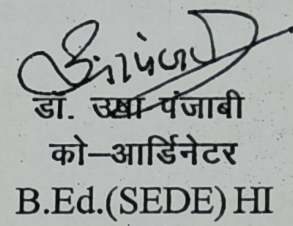 डा. उषा पंजाबी
को–आर्डिनेटर
B.Ed.(SEDE) HI